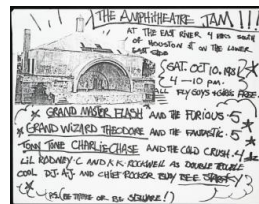 THE AMPHITHEATRE JAM!!!
AT THE EAST RIVER 4 BLKS SOUTH
OF HOUSTON ST ON THE LOWER
EAST SIDE
SAT. OCT 10. 1981
4 — 10 P.M.
ALL FLY GUYS + GIRLS FREE.
GRAND MASTER FLASH AND THE FURIOUS 5
GRAND WIZARD THEODORE AND THE FANTASTIC 5
TONY TONE CHARLIE CHASE AND THE COLD CRUSH 4
LIL RODNEY-C AND K.K. ROCKWELL AS DOUBLE TROUBLE
COOL DJ AJ AND CHIEF ROCKER BUSY BEE
P.S. (BE THERE OR BE SQUARE!)